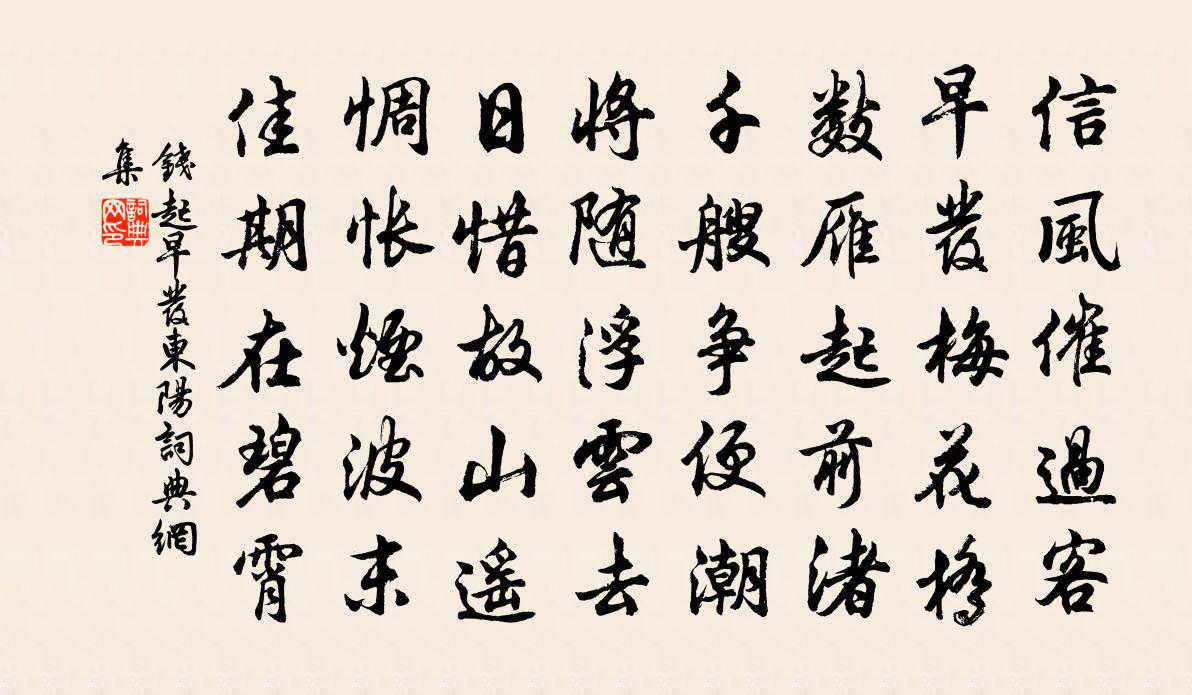 信風催過客
早發梅花橋
數雁起前渚
千艘争便潮
將随浮雲去
日惜故山遥
惆悵煙波末
佳期在碧霄
錢起早發東陽詞典網
集
詞典
网印